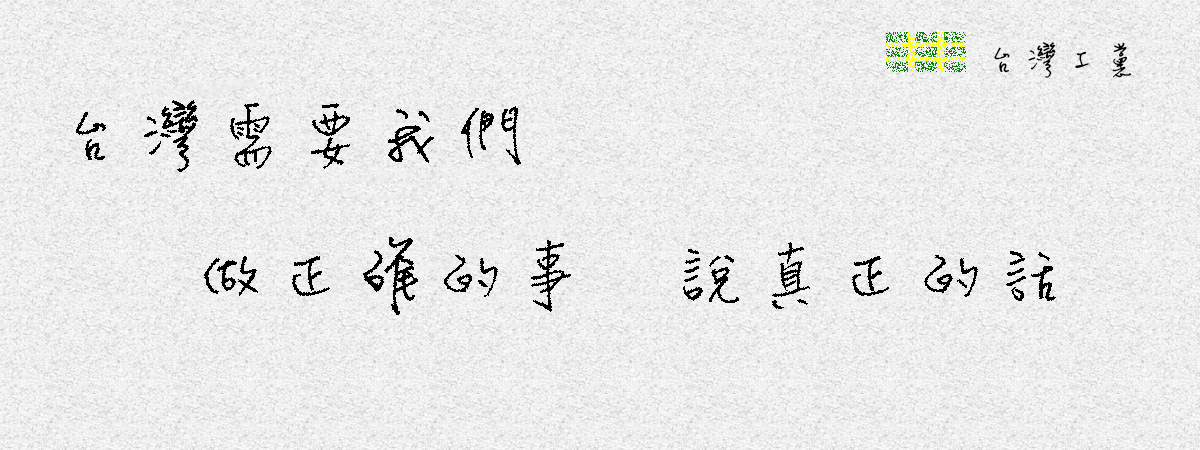 台灣工黨
台灣需要我們
做正確的事 說真正的話